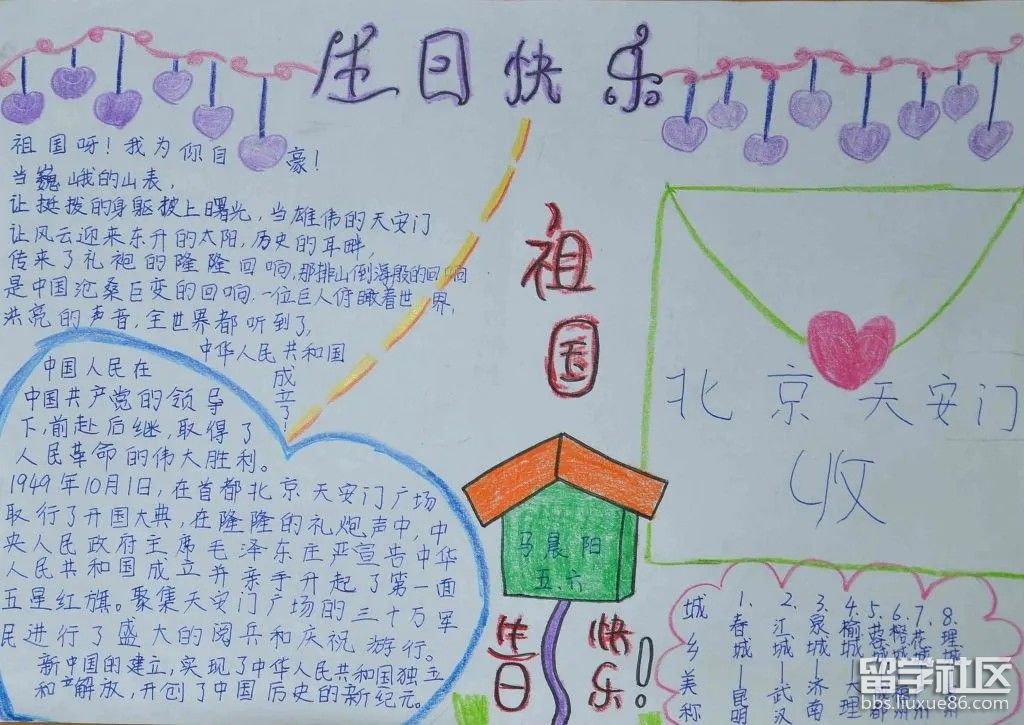 生日快乐
祖国呀！我为你自豪！
当巍峨的山表，
让挺拨的身躯披上曙光，当雄伟的天安门
让风云迎来东升的太阳，历史的耳畔，
传来了礼袍的隆隆回响，那排山倒海般的回响
是中国沧桑巨变的回响，一位巨人俯瞰着世界，
洪亮的声音，全世界都听到了，
中华人民共和国
成立了！
中国人民在
中国共产党的领导
下，前赴后继，取得了
人民革命的伟大胜利。
1949年10月1日，在首都北京天安门广场
取行了开国大典，在隆隆的礼炮声中，中
央人民政府主席毛泽东庄严宣告中华
人民共和国成立并亲手升起了第一面
五星红旗。聚集天安门广场的三十万军
民进行了盛大的阅兵和庆祝游行。
新中国的建立，实现了中华人民共和国独立
和解放，开创了中国历史的新纪元。
祖国
生日
快乐！
马晨阳
五六
北京天安门
收
城乡美称
1、春城—昆明
2、江城—武汉
3、泉城—济南
4、榆城—大理
5、蓉城
6、
7、花城
8、
留学社区
bbs.liuxue86.com